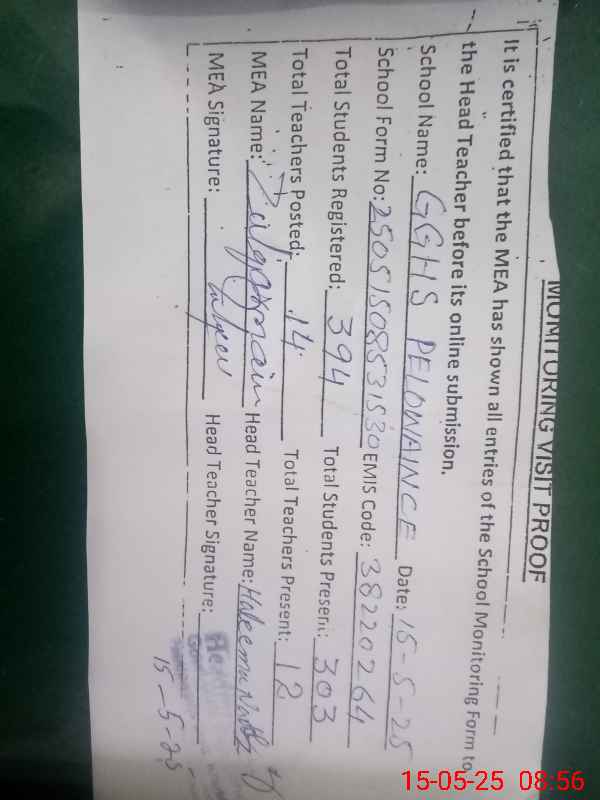 MONITORING VISIT PROOF
It is certified that the MEA has shown all entries of the School Monitoring Form to
the Head Teacher before its online submission.
School Name: GGHS PELOWAINCE Date: 15-5-25
School Form No: 250515085331530 EMIS Code: 38220264
Total Students Registered: 394 Total Students Present: 303
Total Teachers Posted: 14 Total Teachers Present: 12
MEA Name: Zulqarnain Head Teacher Name: Haleema
MEA Signature: Head Teacher Signature:
15-5-25
15-05-25 08:56